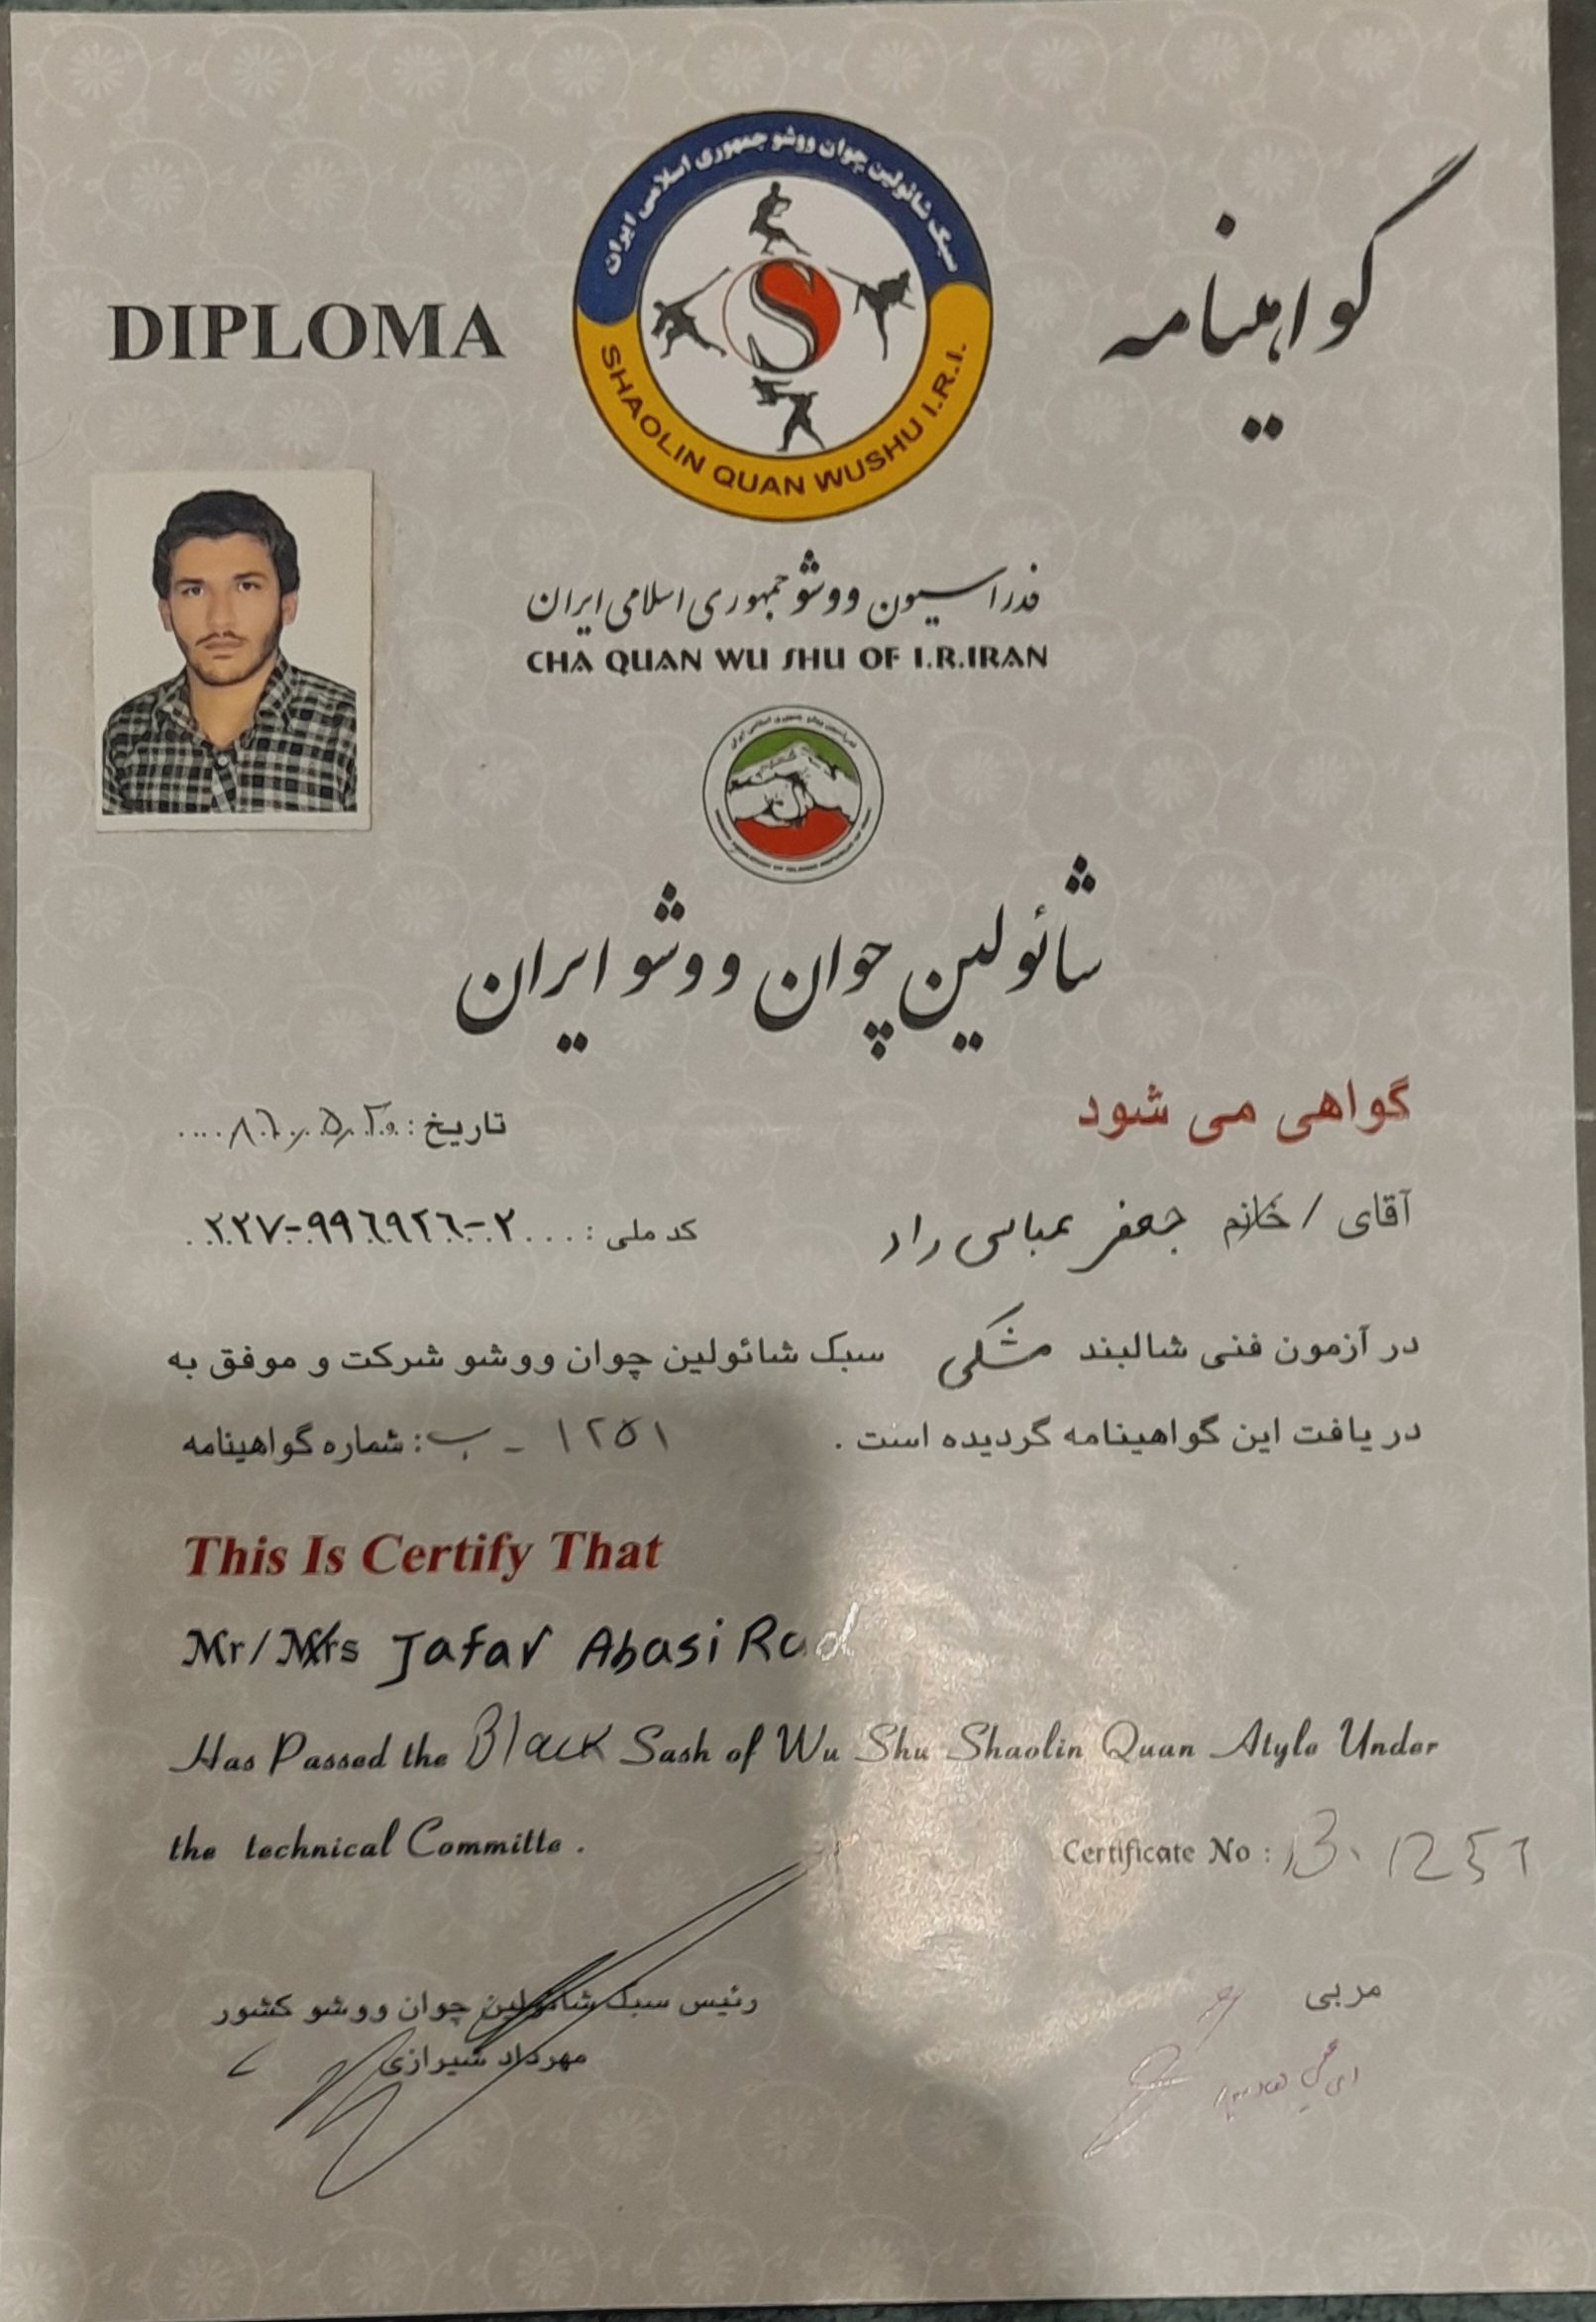 گواهینامه
DIPLOMA
سبک شائولین چوان ووشو جمهوری اسلامی ایران
SHAOLIN QUAN WUSHU I.R.I.
S
فدراسیون ووشو جمهوری اسلامی ایران
CHA QUAN WU SHU OF I.R.IRAN
شائولین چوان ووشو ایران
گواهی می شود
تاریخ: ۸۶/۵/۲۰
آقای / خانم جعفر عباسی راد
کد ملی: ۲۲۷-۹۹۶۹۲۶-۲
در آزمون فنی شالبند مشکی سبک شائولین چوان ووشو شرکت و موفق به
دریافت این گواهینامه گردیده است. شماره گواهینامه: ب - ۱۲۵۱
This Is Certify That
Mr/Mrs Jafar Abasi Rad
Has Passed the Black Sash of Wu Shu Shaolin Quan Atyle Under
the technical Committe.
Certificate No: B. 1251
مربی
رئیس سبک شائولین چوان ووشو کشور
مهرداد شیرازی